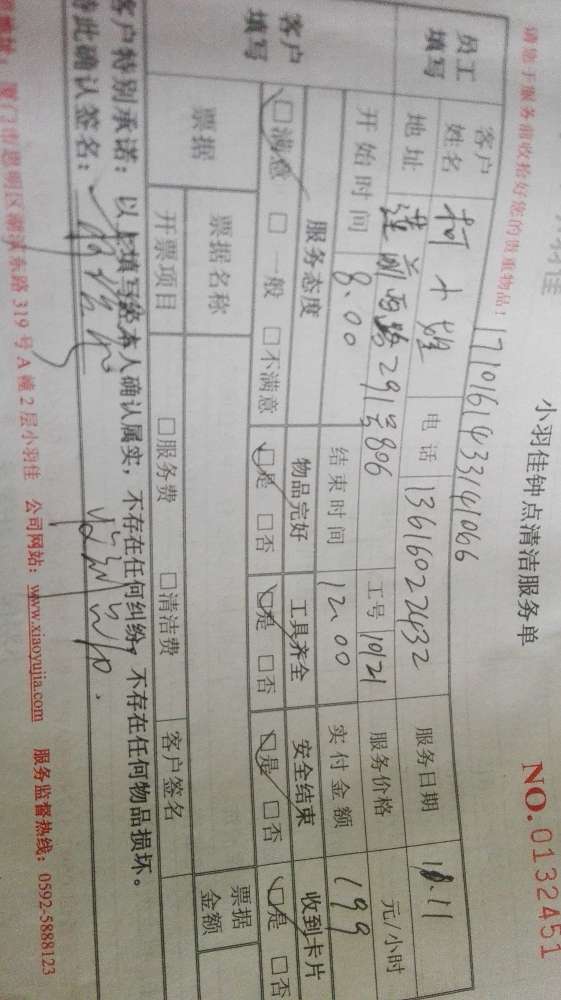 小羽佳钟点清洁服务单
NO.0132451
请您于服务前收拾好您的贵重物品！
1710161433141066
员工填写 客户姓名 柯小姐 电话 13616022432 服务日期 10.11
地址 莲前西路291号806 工号 1021 服务价格 元/小时
开始时间 8.00 结束时间 12.00 实付金额 199
客户填写 服务态度 物品完好 工具齐全 安全结束 收到卡片
☑满意 □一般 □不满意 ☑是 □否 ☑是 □否 ☑是 □否 ☑是 □否
票据 票据名称 票据金额
开票项目 □服务费 □清洁费 客户签名
客户特别承诺：以上填写经本人确认属实，不存在任何纠纷，不存在任何物品损坏。
特此确认签名：
厦门市思明区湖滨东路319号A幢2层小羽佳 公司网站：www.xiaoyujia.com 服务监督热线：0592-5888123